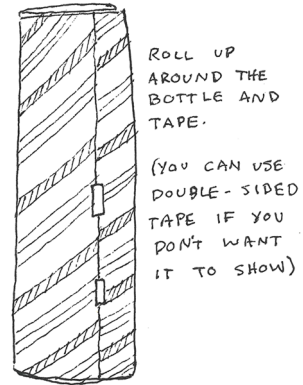 ROLL UP
AROUND THE
BOTTLE AND
TAPE.
(YOU CAN USE
DOUBLE-SIDED
TAPE IF YOU
DON'T WANT
IT TO SHOW)